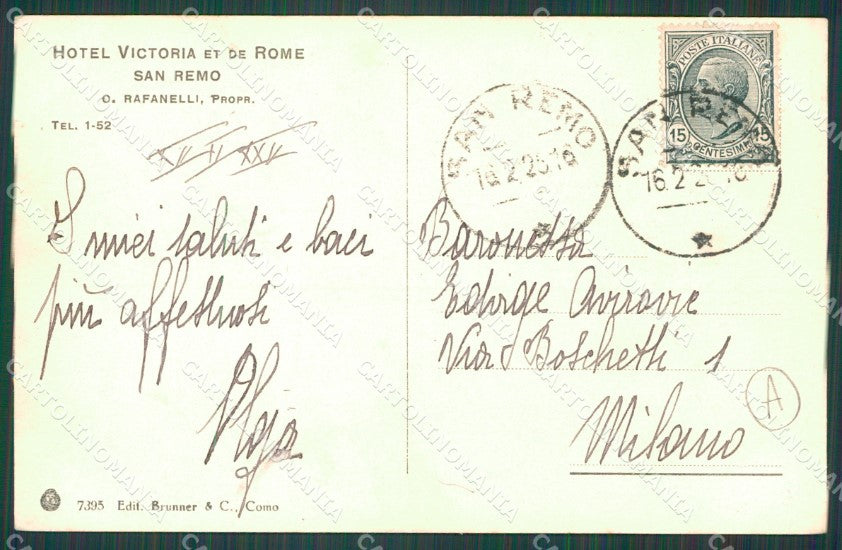 HOTEL VICTORIA ET DE ROME
SAN REMO
O. RAFANELLI, PROPR.
TEL. 1-52
I miei saluti e baci
più affettuosi
Olga
7395 Edit. Brunner & C., Como
POSTE ITALIANE
15 15
CENTESIMI
SAN REMO
16.2.25.18
SAN REMO
16.2.25.18
Baronessa
Edvige
Via Boschetti 1
Milano
A
CARTOLINOMANIA